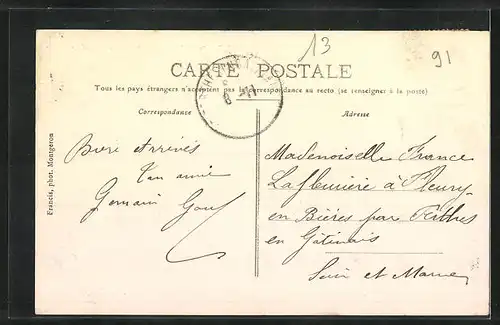 13
91
CARTE POSTALE
Tous les pays étrangers n'acceptent pas la correspondance au recto (se renseigner à la poste)
Correspondance
Adresse
Francis, phot. Montgeron
Bien Arrivés
Ton amie
Germain
Mademoiselle France
à Fleury
en Bières par Perthes
en Gâtinais
Seine et Marne